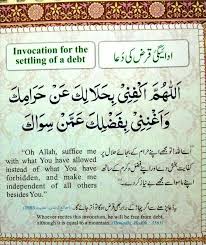 Invocation for the
settling of a debt
ادائیگیٔ قرض کی دُعا
اَللّٰهُمَّ اكْفِنِيْ بِحَلَالِكَ عَنْ حَرَامِكَ
وَاَغْنِنِيْ بِفَضْلِكَ عَمَّنْ سِوَاكَ
"Oh Allah, suffice me
with what You have allowed
instead of what You have
forbidden, and make me
independent of all others
besides You."
اے اللہ! مجھے اپنے حرام کے بجائے حلال
Whoever recites this invocation, he will be free from debt,
although it is equal to a mountain.